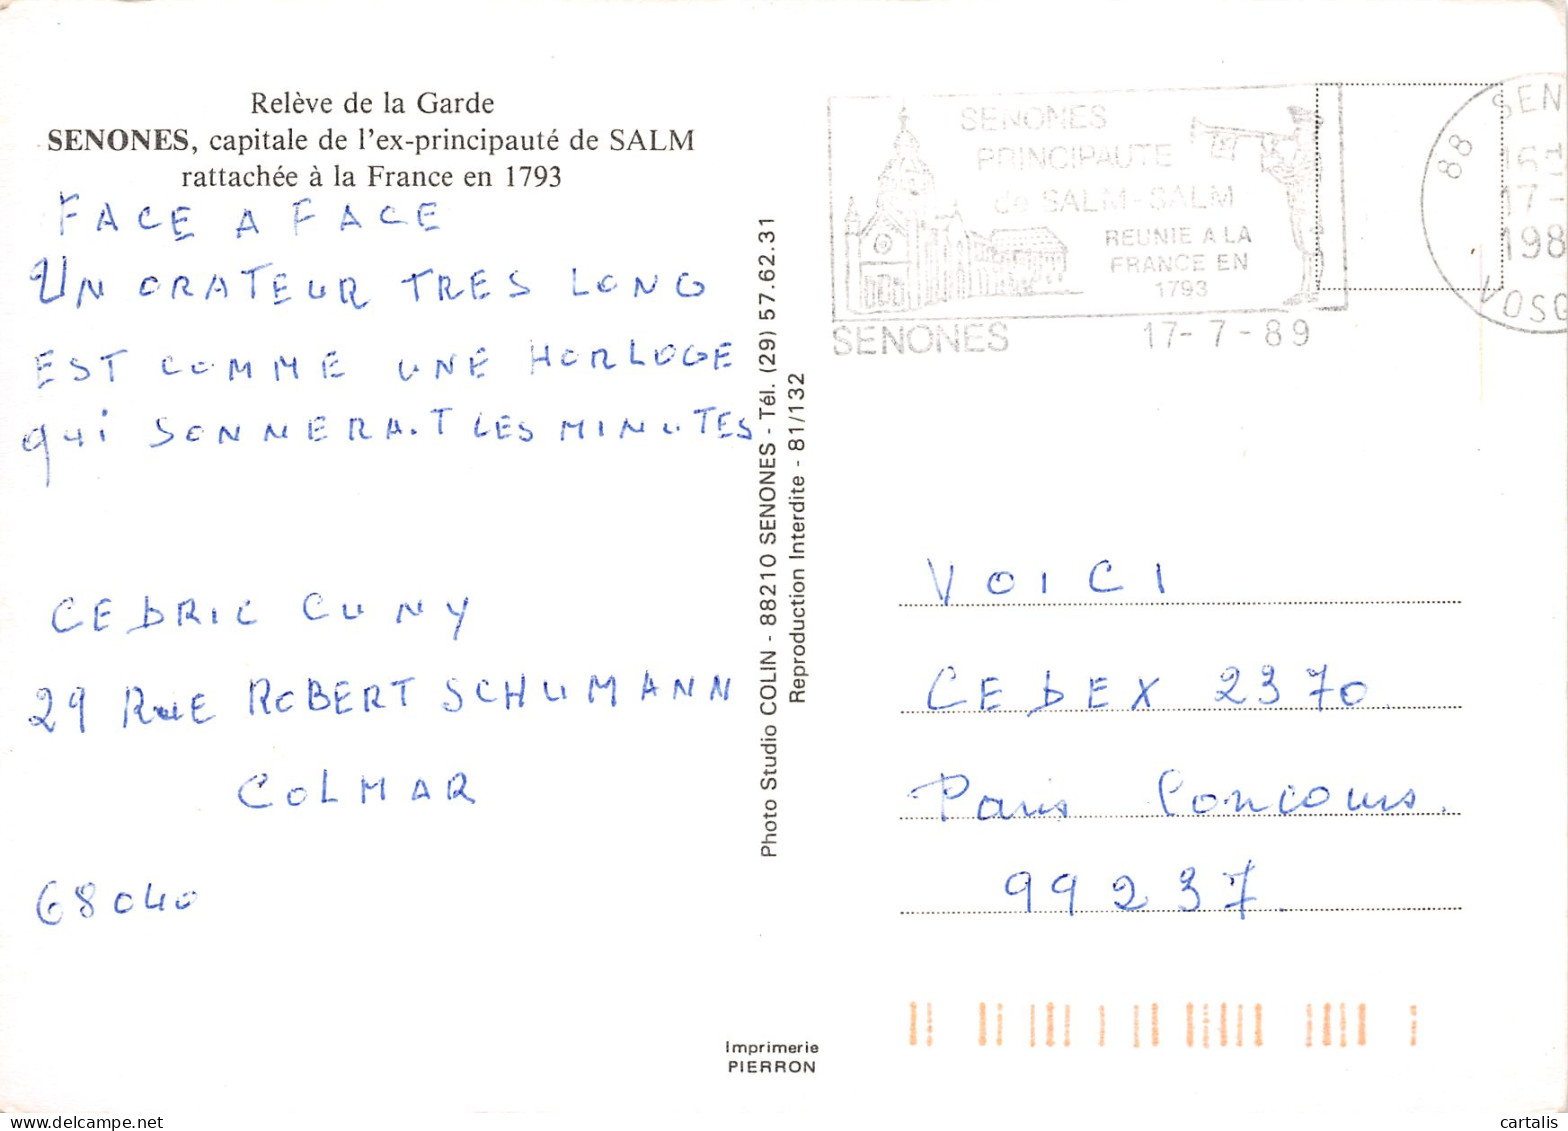 Relève de la Garde
SENONES, capitale de l'ex-principauté de SALM
rattachée à la France en 1793
FACE A FACE
UN ORATEUR TRES LONG
EST COMME UNE HORLOGE
qui SONNERAiT LES MINUTES
CEDRIC CUNY
29 RUE ROBERT SCHUMANN
COLMAR
68040
Photo Studio COLIN - 88210 SENONES - Tél. (29) 57.62.31
Reproduction Interdite - 81/132
Imprimerie
PIERRON
SENONES
PRINCIPAUTE
de SALM-SALM
REUNIE A LA
FRANCE EN
1793
SENONES 17-7-89
88 SEN
17-
198
VOSG
VOICI
CEDEX 2370
Paris Concours.
99237.
cartalis